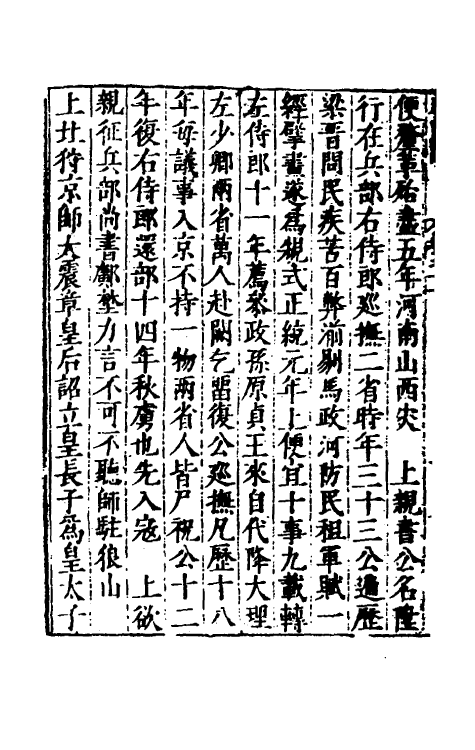 便釐革殆盡五年河南山西灾　上親書公名陞
行在兵部右侍郎廵撫二省時年三十三公遍歷
梁晋問民疾苦百弊湔剔馬政河防民租軍賦一
經擘畫遂爲規式正統元年上便宜十事九載轉
左侍郎十一年薦叅政孫原貞王來自代降大理
左少卿兩省萬人赴闕乞留復公廵撫凡歷十八
年每議事入京不持一物兩省人皆尸祝公十二
年復右侍郎還部十四年秋虜也先入寇　上欲
親征兵部尚書鄺埜力言不可不聽師駐狼山
上北狩京師大震章皇后詔立皇長子爲皇太子